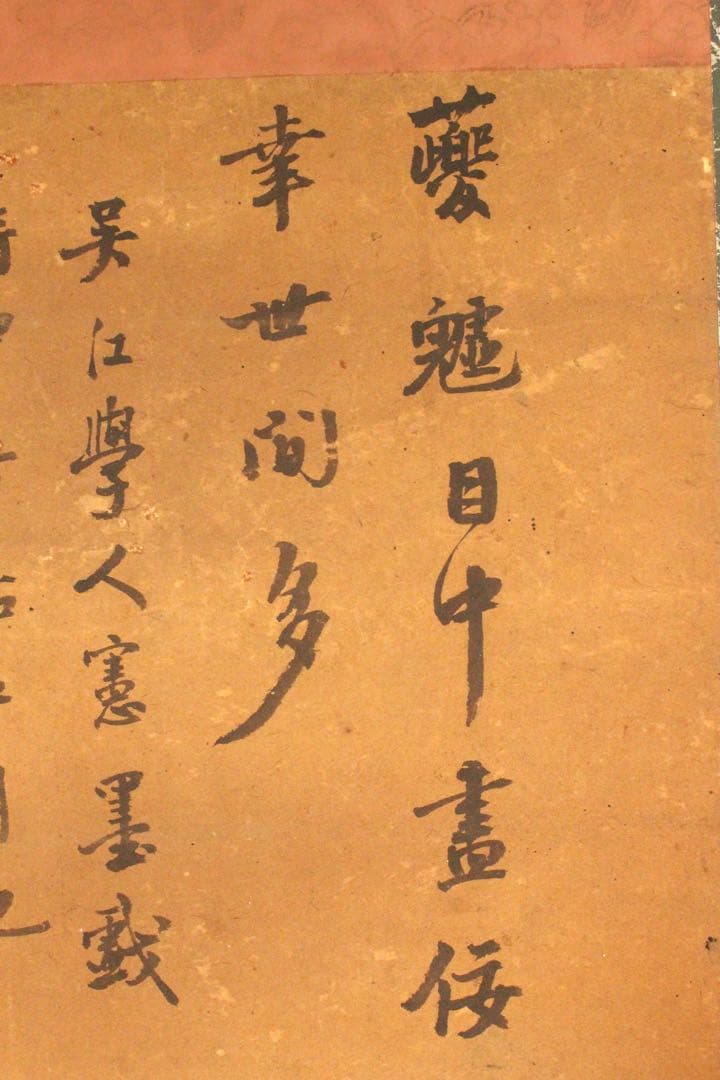 夔魖目中盡佞
幸世間多
吳江學人憲墨戲